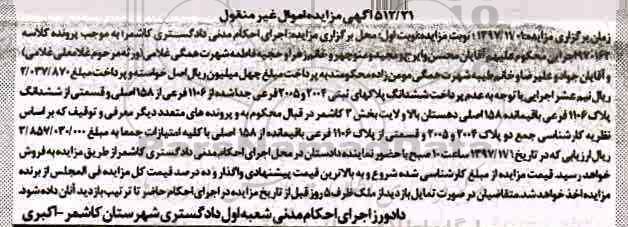 ۵۱۲/۲۱ آگهی مزایده اموال غیر منقول
زمان برگزاری مزایده: ۱۳۹۷/۱۷۰ نوبت مزایده: نوبت اول: محل برگزاری مزایده: اجرای احکام مدنی دادگستری کاشمر: به موجب پرونده کلاسه
۹۷۰۱۶۲ اجرایی محکوم علیهم آقایان محسن و ایرج و مجید و منوچهر و خانم زهرا و خدیجه فاطمه شهرت همگی غلامی (ورثه مرحوم غلامعلی غلامی)
و آقایان جواد و علیرضا و خانم طیبه شهرت همگی مومن زاده محکومند به پرداخت مبلغ چهل میلیون ریال اصل خواسته و پرداخت مبلغ ۲/۰۳۷/۸۷۰
ریال نیم عشر اجرایی با توجه به عدم پرداخت ششدانگ پلاکهای ثبتی ۲۰۰۴ و ۲۰۰۵ فرعی جدا شده از ۱۱۰۶ فرعی از ۱۵۸ اصلی و قسمتی از ششدانگ
پلاک ۱۱۰۶ فرعی باقیمانده ۱۵۸ اصلی دهستان بالا ولایت بخش ۲ کاشمر در قبال محکوم به و پرونده های متعدد دیگر معرفی و توقیف که بر اساس
نظریه کارشناسی جمع دو پلاک ۲۰۰۴ و ۲۰۰۵ و قسمتی از پلاک ۱۱۰۶ فرعی باقیمانده از ۱۵۸ اصلی با کلیه امتیازات جمعا به مبلغ ۳/۸۵۷/۰۳۰/۰۰۰
ریال ارزیابی که در تاریخ ۱۳۹۷/۱۷۱ ساعت ۱۰ صبح با حضور نماینده دادستان در محل اجرای احکام مدنی دادگستری کاشمر از طریق مزایده به فروش
خواهد رسید. قیمت مزایده از مبلغ کارشناسی شده شروع و به بالاترین قیمت پیشنهادی واگذار و ده درصد قیمت کل مزایده فی المجلس از برنده
مزایده اخذ خواهد شد متقاضیان در صورت تمایل بازدید از ملک ظرف ۵ روز قبل از تاریخ مزایده در اجرای احکام حاضر تا ترتیب بازدید آنان داده شود.
دادورز اجرای احکام مدنی شعبه اول دادگستری شهرستان کاشمر - اکبری